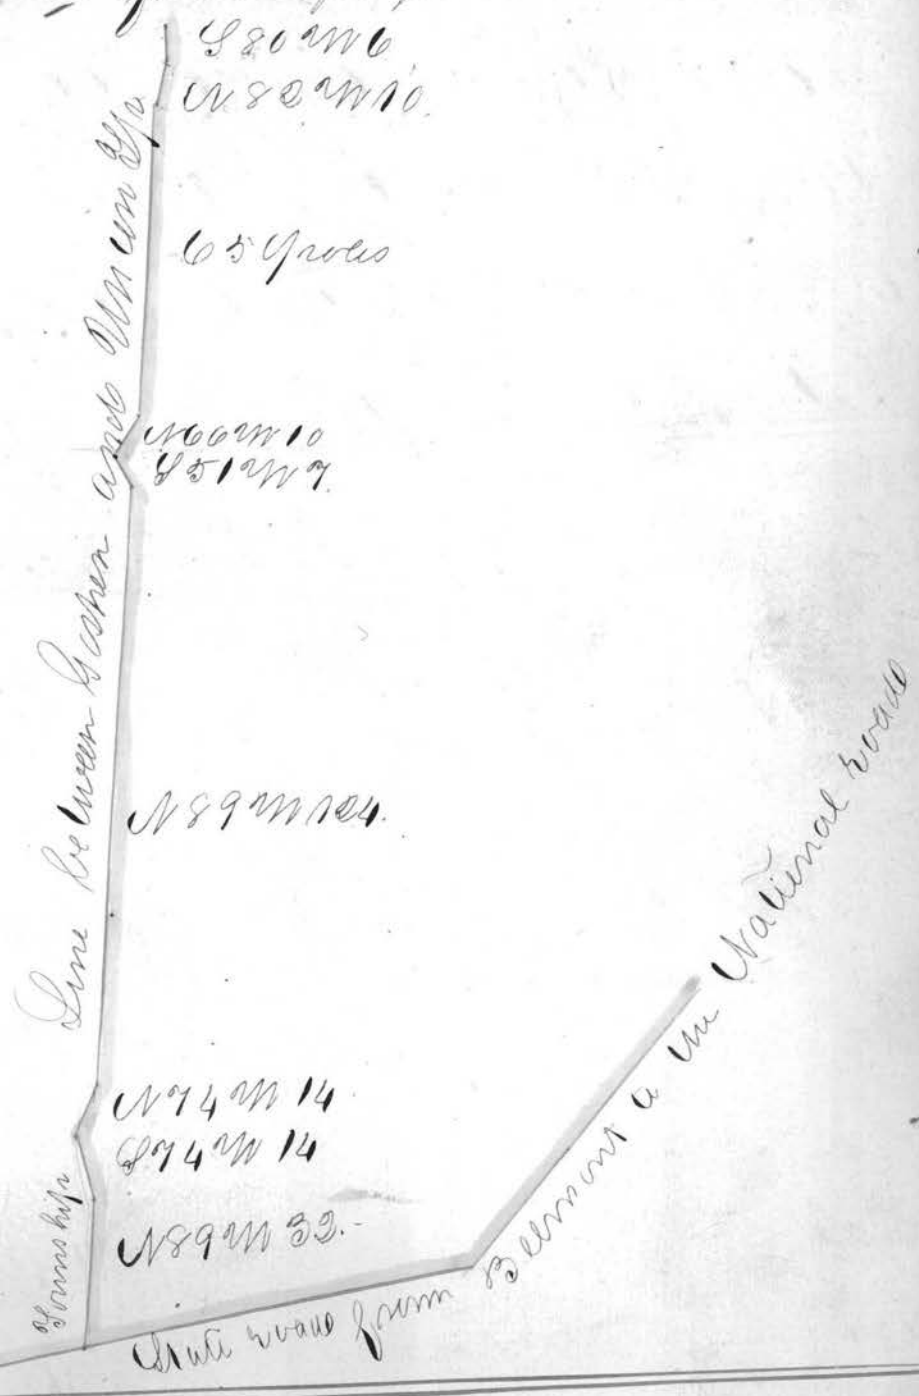 S 80 W 6
N 82 W 10.
65 Poles
N 66 W 10
S 51 W 7.
N 89 W 124.
N 74 W 14
S 74 W 14
N 89 W 32.
Township Line between Goshen and Union Tp
State road from Belmont to the National road